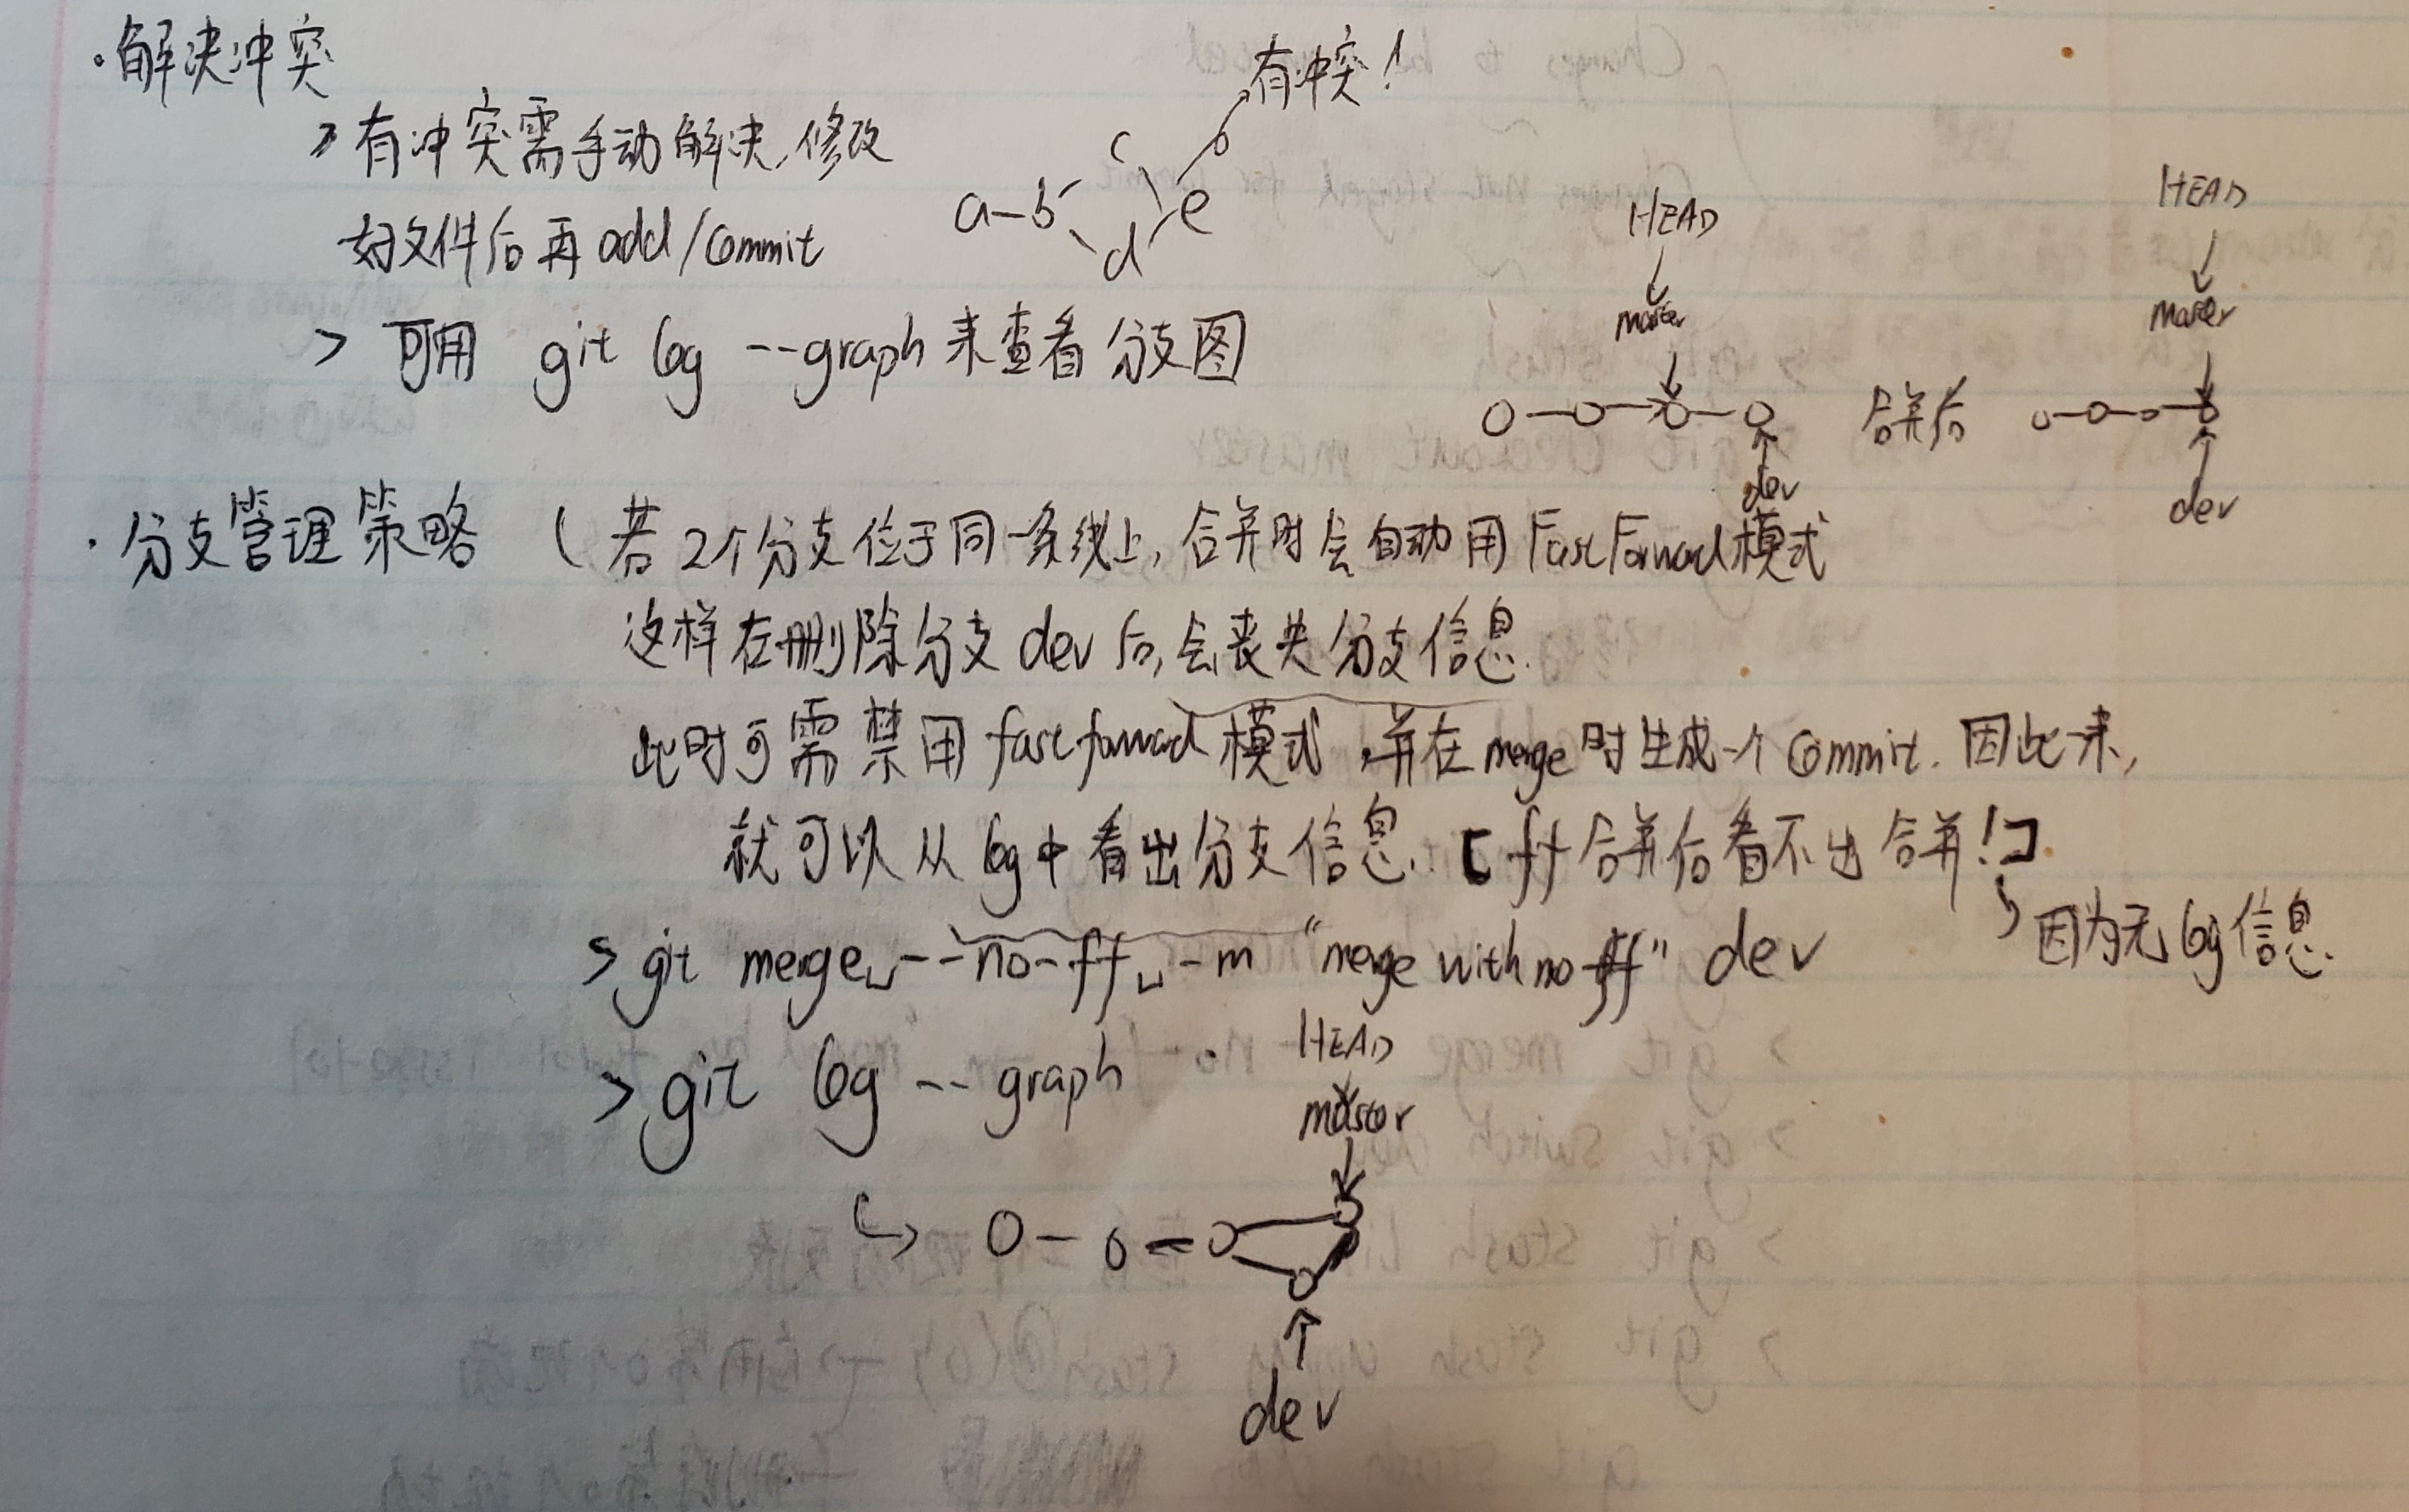 ·解决冲突
有冲突!
> 有冲突需手动解决,修改
好文件后再 add/commit
a-b
c
d
e
> 可用 git log --graph 来查看分支图
HEAD
master
dev
合并后
HEAD
master
dev
·分支管理策略 (若2个分支位于同一条线上,合并时会自动用 Fast Forward 模式
这样在删除分支 dev 后,会丧失分支信息.
此时可需禁用 fast forward 模式,并在 merge 时生成一个 commit. 因此一来,
就可以从 log 中看出分支信息. [ff 合并后看不出合并!]
因为无 log 信息.
> git merge␣--no-ff␣-m “merge with no-ff” dev
> git log --graph
HEAD
master
dev